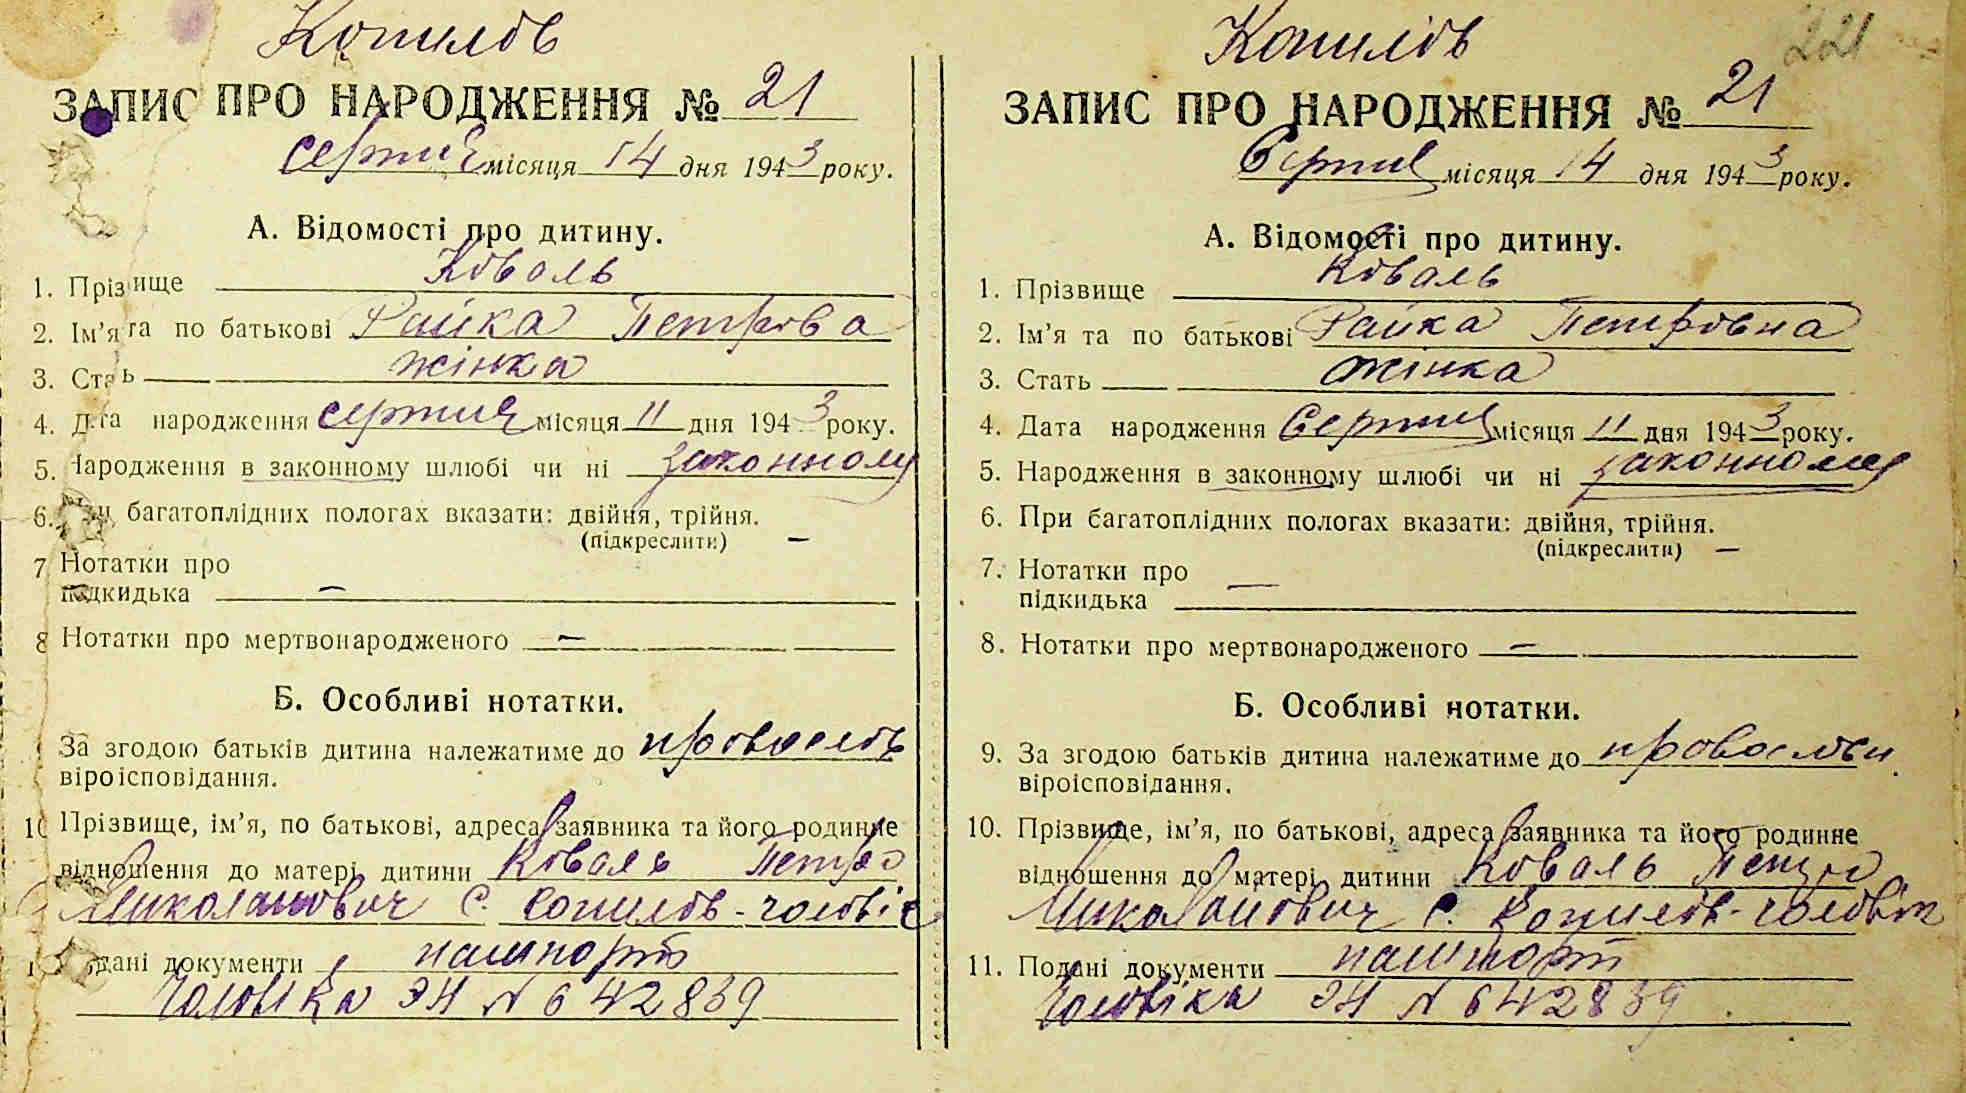 Копилов
ЗАПИС ПРО НАРОДЖЕННЯ № 21
серпня місяця 14 дня 1943 року.
А. Відомості про дитину.
1. Прізвище Коваль
2. Ім'я та по батькові Райка Петрова
3. Стать жінка
4. Дата народження серпня місяця 11 дня 1943 року.
5. Народження в законному шлюбі чи ні законному
6. При багатоплідних пологах вказати: двійня, трійня.
(підкреслити) —
7 Нотатки про
підкидька —
8 Нотатки про мертвонародженого —
Б. Особливі нотатки.
За згодою батьків дитина належатиме до
віроісповідання.
10 Прізвище, ім'я, по батькові, адреса заявника та його родинне
відношення до матері дитини Коваль Петро
Миколайович с. Копилов - чоловік
Подані документи пашпорт
Чоловіка ЭН № 642839
221
Копилов
ЗАПИС ПРО НАРОДЖЕННЯ № 21
Серпня місяця 14 дня 1943 року.
А. Відомості про дитину.
1. Прізвище Коваль
2. Ім'я та по батькові Райка Петровна
3. Стать жінка
4. Дата народження Серпня місяця 11 дня 1943 року.
5. Народження в законному шлюбі чи ні законному
6. При багатоплідних пологах вказати: двійня, трійня.
(підкреслити) —
7. Нотатки про —
підкидька
8. Нотатки про мертвонародженого —
Б. Особливі нотатки.
9. За згодою батьків дитина належатиме до
віроісповідання.
10. Прізвище, ім'я, по батькові, адреса заявника та його родинне
відношення до матері дитини Коваль Петро
Миколайович с. Копилов - чоловік
11. Подані документи пашпорт
Чоловіка ЭН № 642839